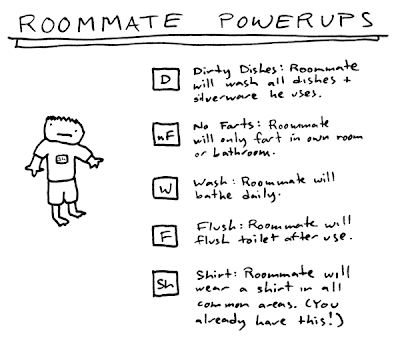 ROOMMATE POWERUPS
D
Dirty Dishes: Roommate
will wash all dishes +
silverware he uses.
nF
No Farts: Roommate
will only fart in own room
or bathroom.
W
Wash: Roommate will
bathe daily.
F
Flush: Roommate will
flush toilet after use.
Sh
Shirt: Roommate will
wear a shirt in all
common areas. (You
already have this!)
Sh